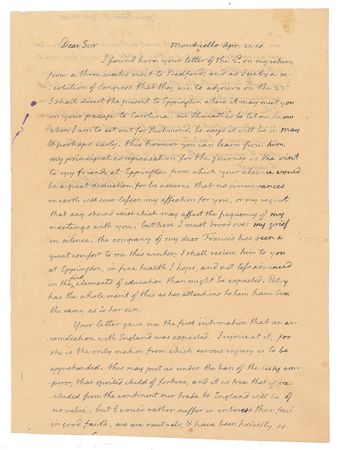 Dear Sir Monticello Apr. 25. 10
I found here your letter of the 2d. on my return
from a three weeks visit to Bedford; and as I see by a re-
solution of Congress that they are to adjourn on the 23d.
I shall direct the present to Eppington where it may meet you
on your passage to Carolina. mr Thweatt is to let me know
when I am to set out for Richmond. he says it will be in may
& perhaps early. this however you can learn from him.
my principal compensation for the journey is the visit
to my friends at Eppington from which your absence would
be a great deduction. for be assured that no circumstances
on earth will ever lessen my affection for you, or my regret
that any should exist which may affect the frequency of my
meetings with you. but here I must brood over my grief
in silence. the company of my dear Francis has been a
great comfort to me this winter. I shall restore him to you
at Eppington, in fine health I hope, and not less advanced
in the elements of education than might be expected.
has the whole merit of this as her attentions to him have been
the same as to her own.
Your letter gave me the first intimation that an ac-
comodation with England was expected. I rejoice at it, for
she is the only nation from which serious injury is to be
apprehended. this may put us under the ban of the
emperor, that spoiled child of fortune, and it is true that if ex-
cluded from the continent our trade to England will be of
no value. but I would rather suffer in interest than fail
in good faith. we are neutrals, & have been honestly so